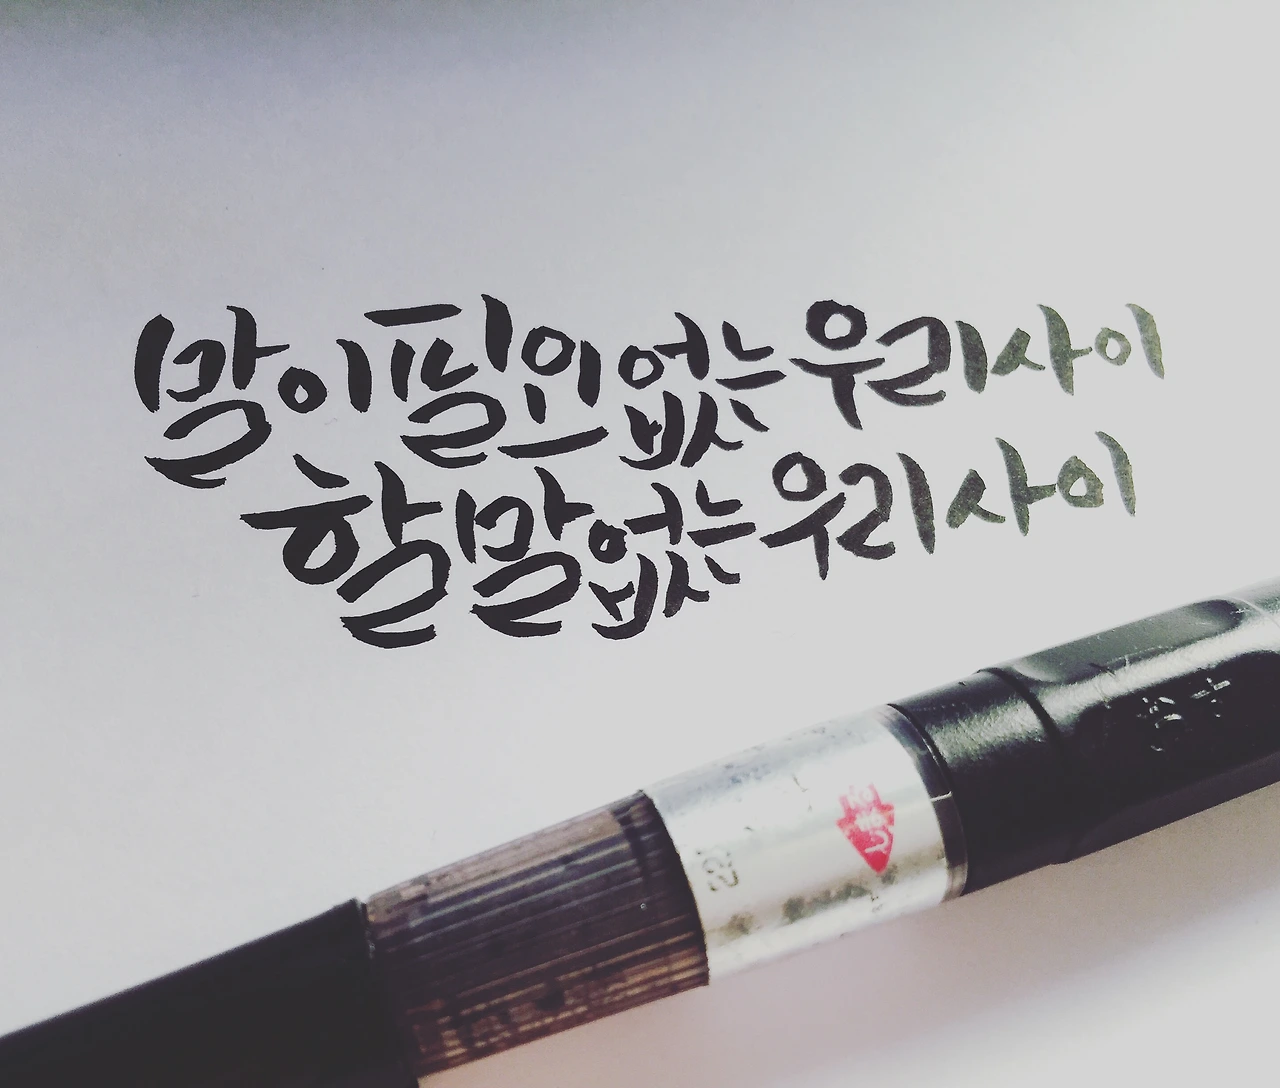 말이 필요없는 우리사이
할말없는 우리사이